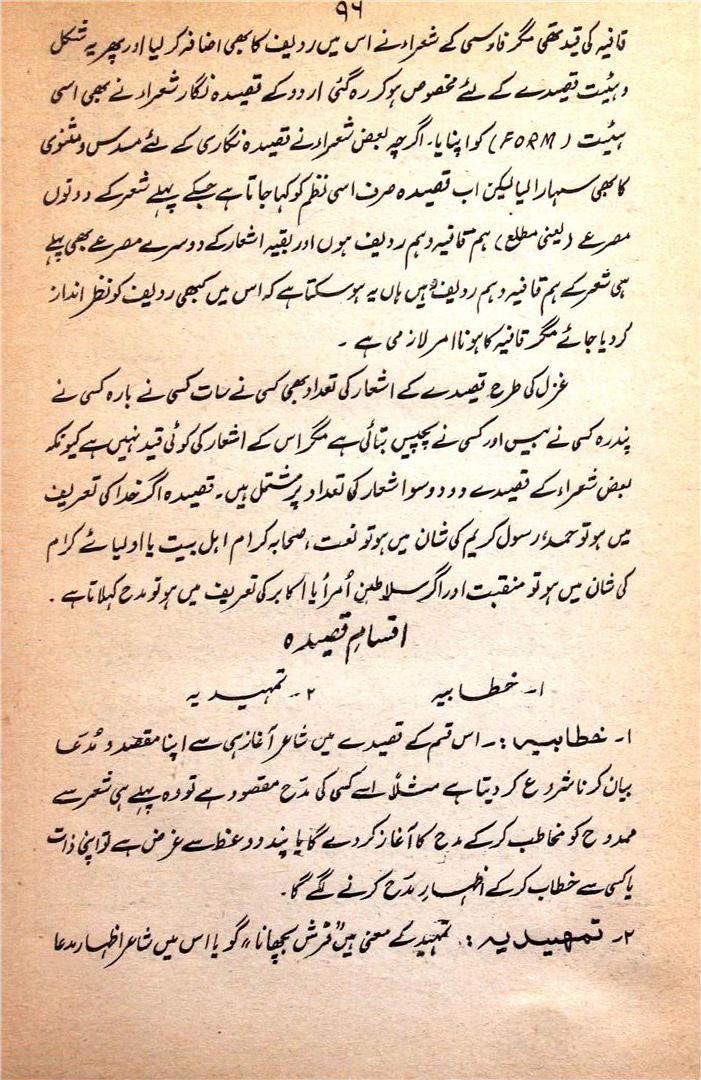 ۹۶
قافیہ کی قید تھی مگر فارسی کے شعراء نے اس میں ردیف کا بھی اضافہ کر لیا اور پھر یہ شکل
و ہیئت قصیدے کے لئے مخصوص ہو کر رہ گئی اردو کے قصیدہ نگار شعراء نے بھی اسی
ہیئت (FORM) کو اپنایا۔ اگرچہ بعض شعراء نے قصیدہ نگاری کے لئے مسدس و مثنوی
کا بھی سہارا لیا لیکن اب قصیدہ صرف اسی نظم کو کہا جاتا ہے جسکے پہلے شعر کے دونوں
مصرعے (یعنی مطلع) ہم قافیہ و ہم ردیف ہوں اور بقیہ اشعار کے دوسرے مصرعے بھی پہلے
ہی شعر کے ہم قافیہ و ہم ردیف ہیں ہاں یہ ہو سکتا ہے کہ اس میں کبھی ردیف کو نظر انداز
کر دیا جائے مگر قافیہ کا ہونا امر لازمی ہے ۔
غزل کی طرح قصیدے کے اشعار کی تعداد بھی کسی نے سات کسی نے بارہ کسی نے
پندرہ کسی نے بیس اور کسی نے پچیس بتائی ہے مگر اس کے اشعار کی کوئی قید نہیں ہے کیونکہ
بعض شعراء کے قصیدے دو دو سو اشعار کی تعداد پر مشتمل ہیں۔ قصیدہ اگر خدا کی تعریف
میں ہو تو حمد، رسول کریم کی شان میں ہو تو نعت، صحابہ کرام اہل بیت یا اولیائے کرام
کی شان میں ہو تو منقبت اور اگر سلاطین اُمرأ یا اکابر کی تعریف میں ہو تو مدح کہلاتا ہے ۔
اقسامِ قصیدہ
۱۔ خطابیہ ۲۔ تمہیدیہ
۱۔ خطابیہ :۔ اس قسم کے قصیدے میں شاعر آغاز ہی سے اپنا مقصد و مُدعا
بیان کرنا شروع کر دیتا ہے مثلاً اسے کسی کی مدح مقصود ہے تو وہ پہلے ہی شعر سے
ممدوح کو مخاطب کر کے مدح کا آغاز کر دے گا یا پند و وعظ سے غرض ہے تو اپنی ذات
یا کسی سے خطاب کر کے اظہارِ مدح کرنے لگے گا۔
۲۔ تمہیدیہ :۔ تمہید کے معنی ہیں "فرش بچھانا" گویا اس میں شاعر اظہار مدعا